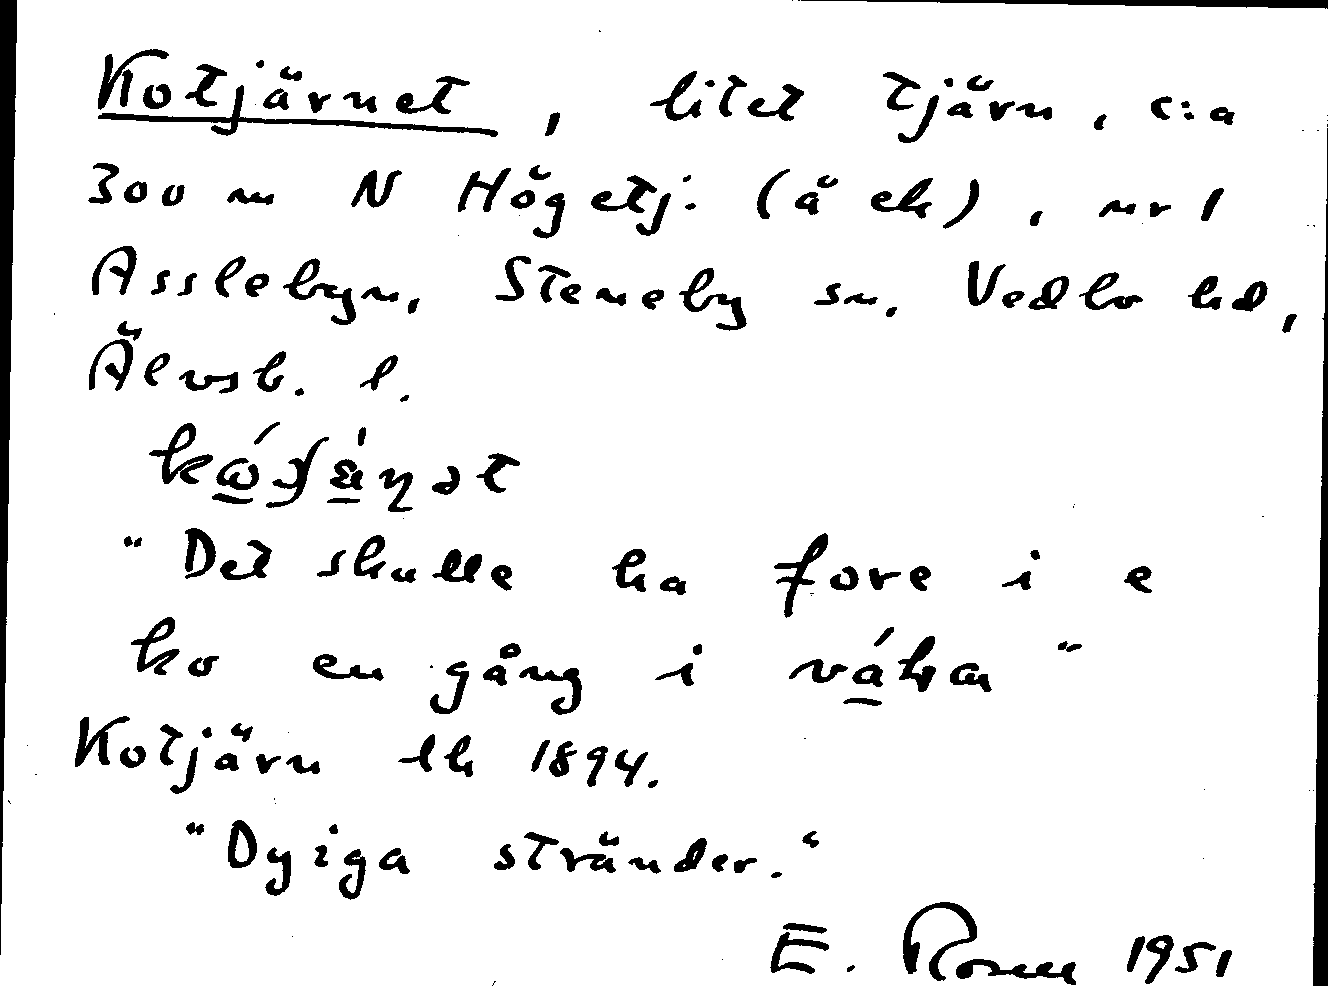 Kotjärnet, litet tjärn, c:a
300 m N Högetj. (å ek), nr 1
Asslebyn, Steneby sn. Vedbo hd,
Älvsb. l.
"Det skulle ha fore i e
ko en gång i våka"
Kotjärn lk 1894.
"Dyiga stränder."
E. Rosell 1951